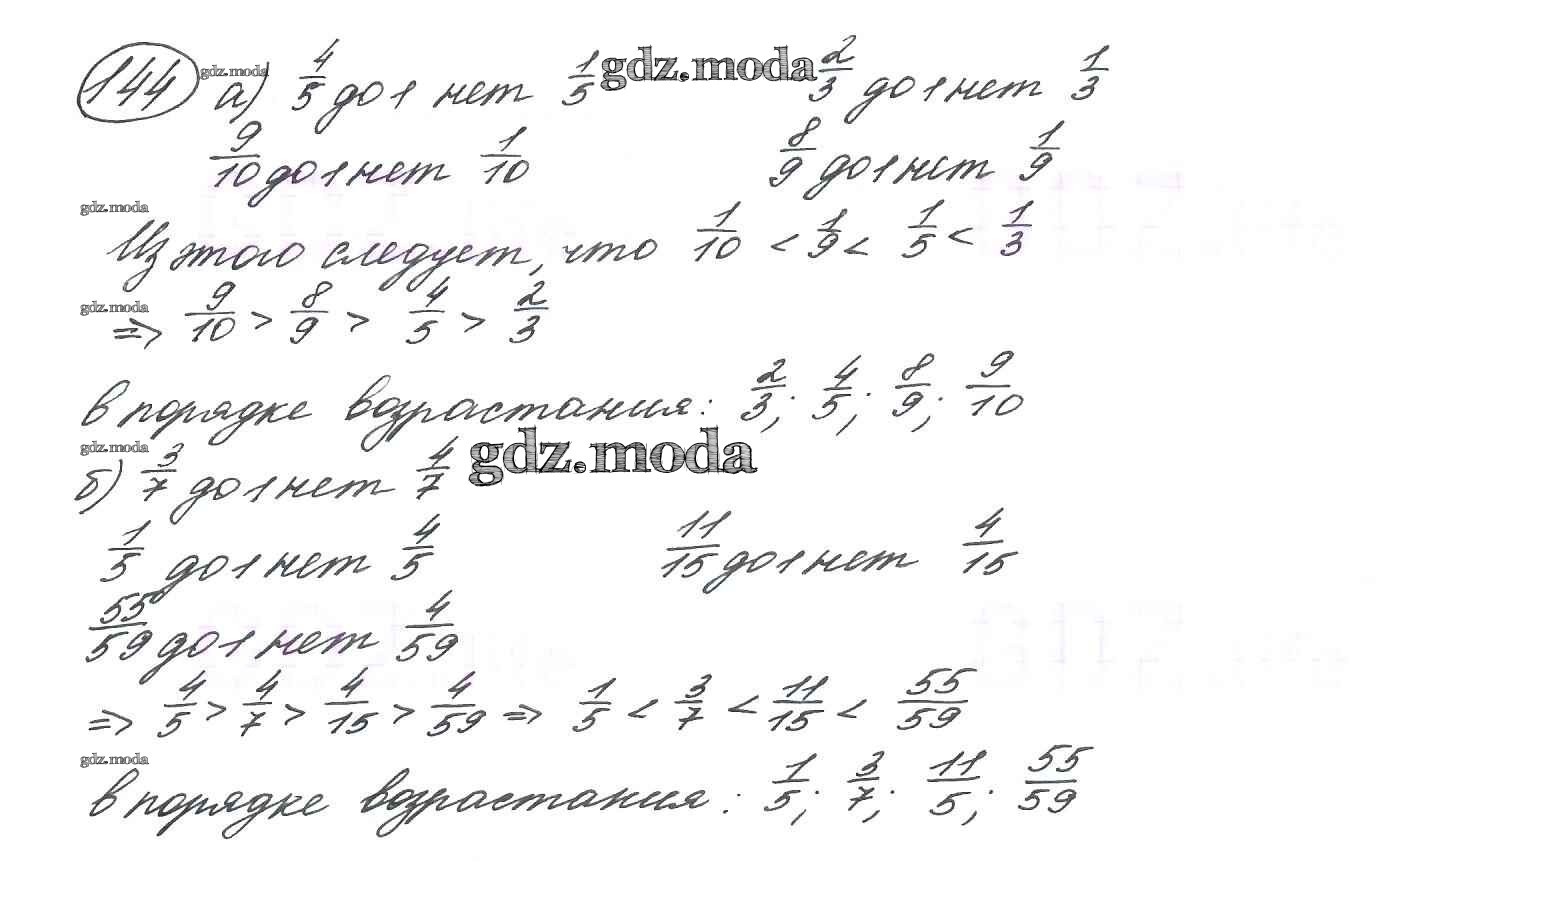 144 gdz.moda а) 4/5 до 1 нет 1/5 gdz.moda 2/3 до 1 нет 1/3
9/10 до 1 нет 1/10 8/9 до 1 нет 1/9
gdz.moda
Из этого следует, что 1/10 < 1/9 < 1/5 < 1/3
gdz.moda
=> 9/10 > 8/9 > 4/5 > 2/3
в порядке возрастания: 2/3; 4/5; 8/9; 9/10
gdz.moda gdz.moda
б) 3/7 до 1 нет 4/7
1/5 до 1 нет 4/5 11/15 до 1 нет 4/15
55/59 до 1 нет 4/59
=> 4/5 > 4/7 > 4/15 > 4/59 => 1/5 < 3/7 < 11/15 < 55/59
gdz.moda
в порядке возрастания: 1/5; 3/7; 11/5; 55/59